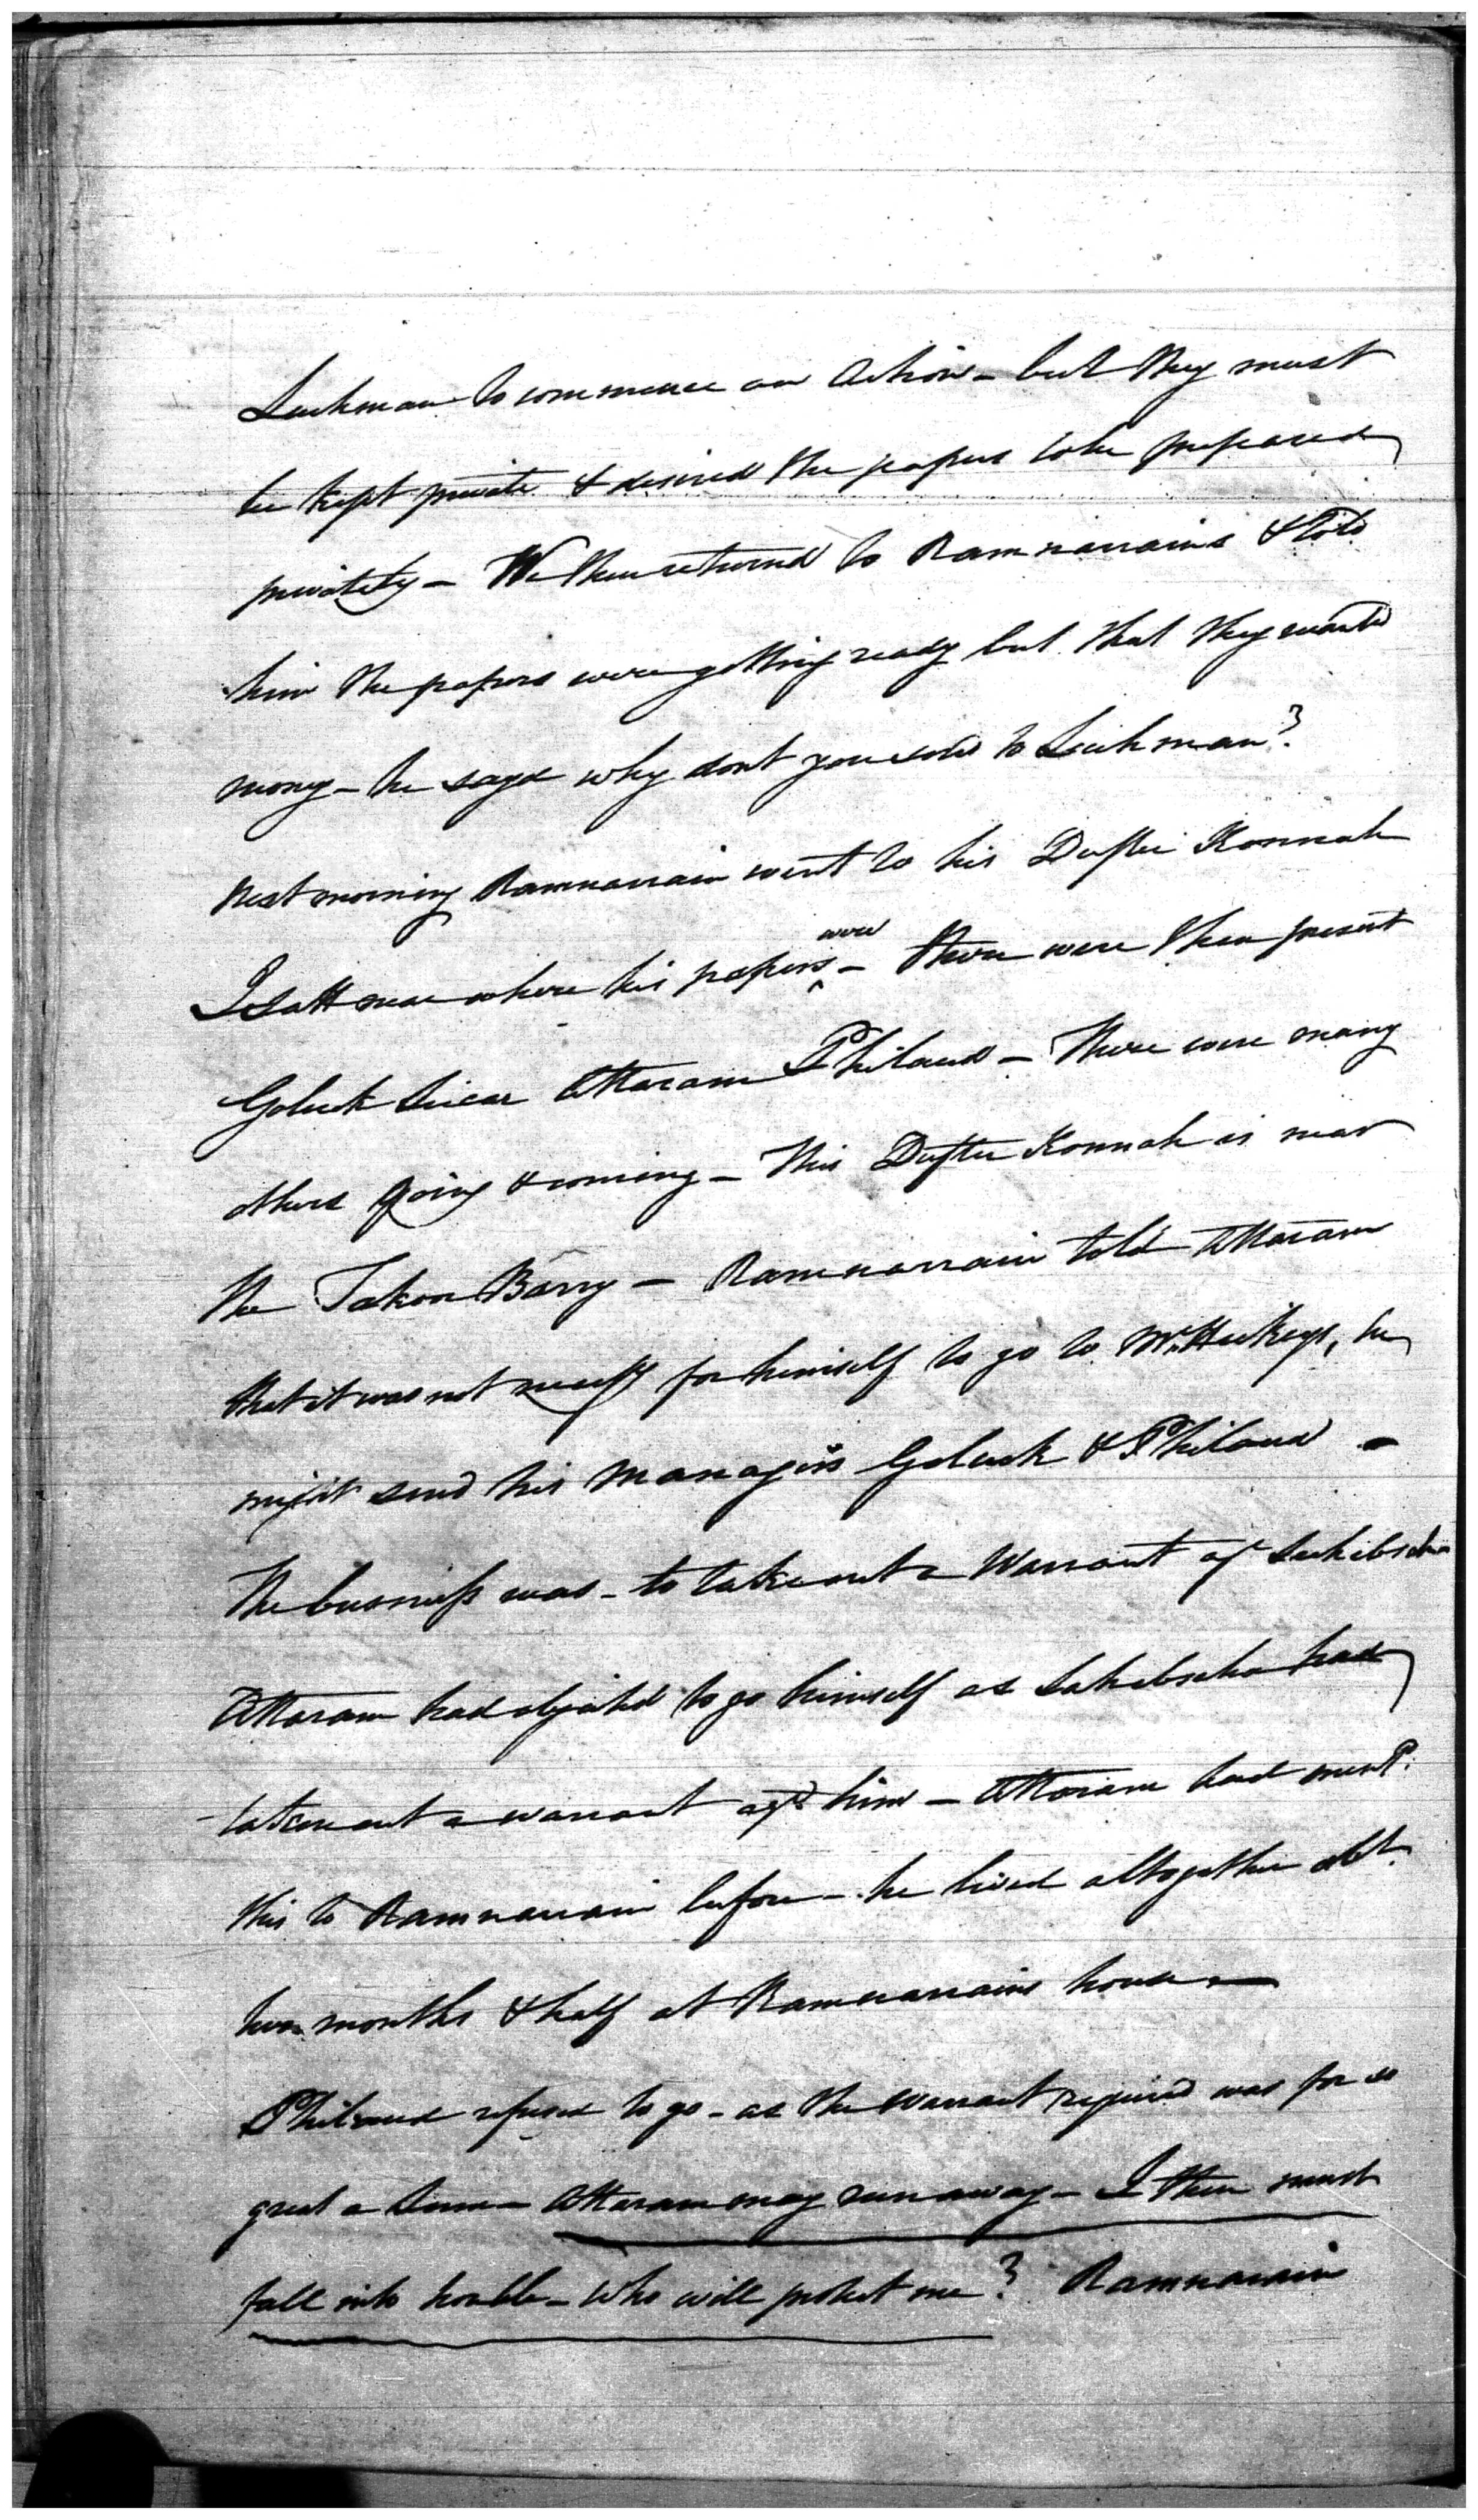 Luckman to commence an Action - but they must
be kept private & desired the papers to be prepared
privately - We then returned to Ramnarrains & told
him the papers were getting ready but that they wanted
mony - he sayd why dont you send to Luckman?
Next morning Ramnarrain went to his Dufter Konnah
I satt near where his papers were - there were then present
Goluck Sircar Attaram Philaud - There were many
others going & coming - This Dufter Konnah is near
the Takoor Barry - Ramnarrain told Attaram
that it was not necessy for himself to go to Mr. Hickeys, he
might send his Managers Goluck & Philaud -
The business was - to take out a Warrant agt
Attaram had objected to go himself as had
taken out a warrant agt him - Attaram had mentd.
this to Ramnarrain before - he lived altogether abt.
two months & half at Ramnarrains house -
Philaud refused to go - as the Warrant required was for so
great a Sum - Attaram may run away - I then must
fall into trouble - who will protect me? Ramnarrain